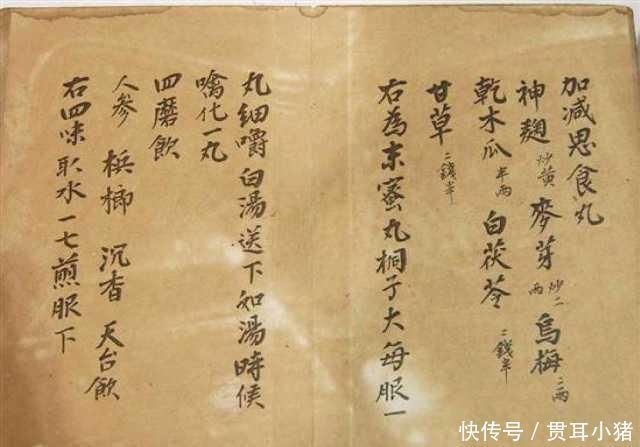 加减思食丸
神麹炒黄 麥芽炒二两 烏梅二兩
乾木瓜半兩 白茯苓二錢半
甘草二錢半
右為末蜜丸桐子大每服一
丸細嚼白湯送下如湯時候
噙化一丸
四磨飲
人參 梹榔 沉香 天台飲
右四味取水一七煎服下
快传号/贯耳小猪